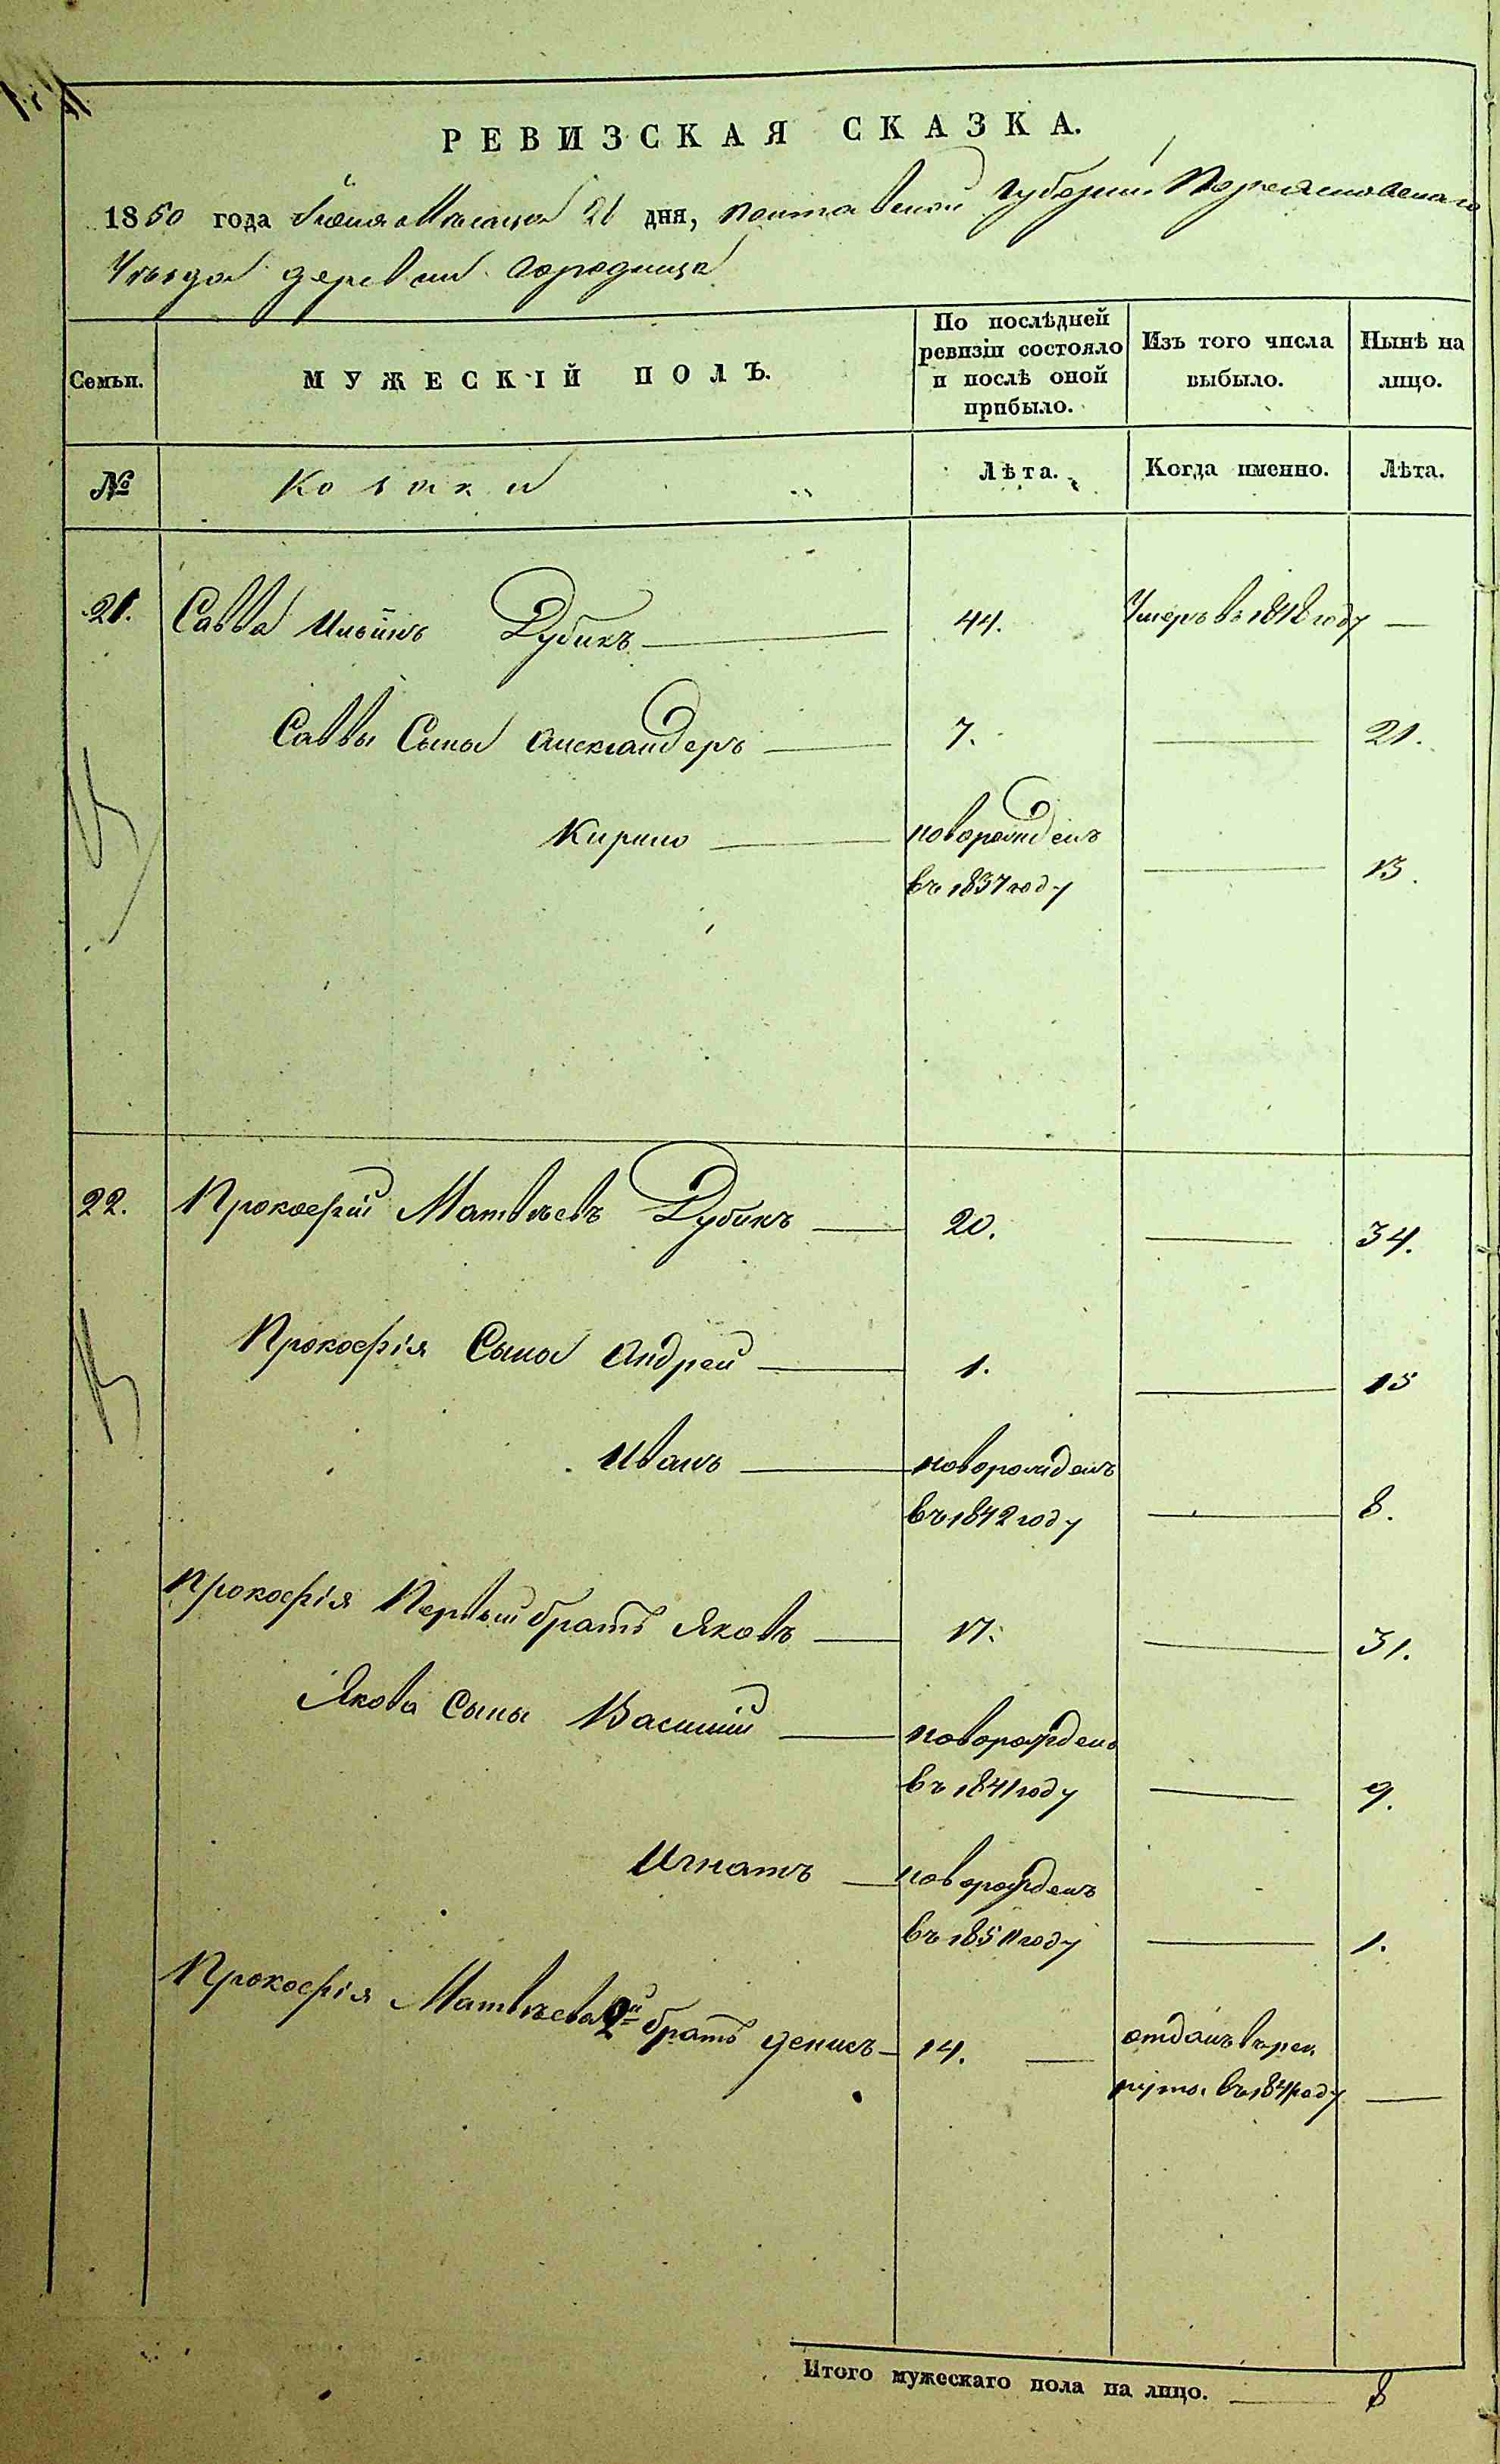 РЕВИЗСКАЯ СКАЗКА.
1850 года Іюня Месяца 26 дня, Полтавской Губерніи Переяславскаго
Уѣзда деревни Городища
Семьи. МУЖЕСКІЙ ПОЛЪ. По послѣдней ревизіи состояло и послѣ оной прибыло. Изъ того числа выбыло. Нынѣ на лицо.
№ Козаки Лѣта. Когда именно. Лѣта.
21. Савва Ильинъ Дубикъ 44. Умеръ въ 1848 году —
Саввы Сыны Александеръ 7. — 21.
Кирило новорожденъ
въ 1837 году — 13.
22. Прокофій Матвѣевъ Дубикъ 20. — 34.
Прокофія Сыны Андрей 1. — 15
Иванъ новорожденъ
въ 1842 году — 8.
Прокофія Первый братъ Яковъ 17. — 31.
Якова Сыны Василій новорожденъ
въ 1841 году — 9.
Игнатъ новорожденъ
въ году — 1.
Прокофія Матвѣева 2й братъ Денисъ 14. — отданъ въ рек
руты въ 1841 году —
Итого мужескаго пола на лицо. — 8